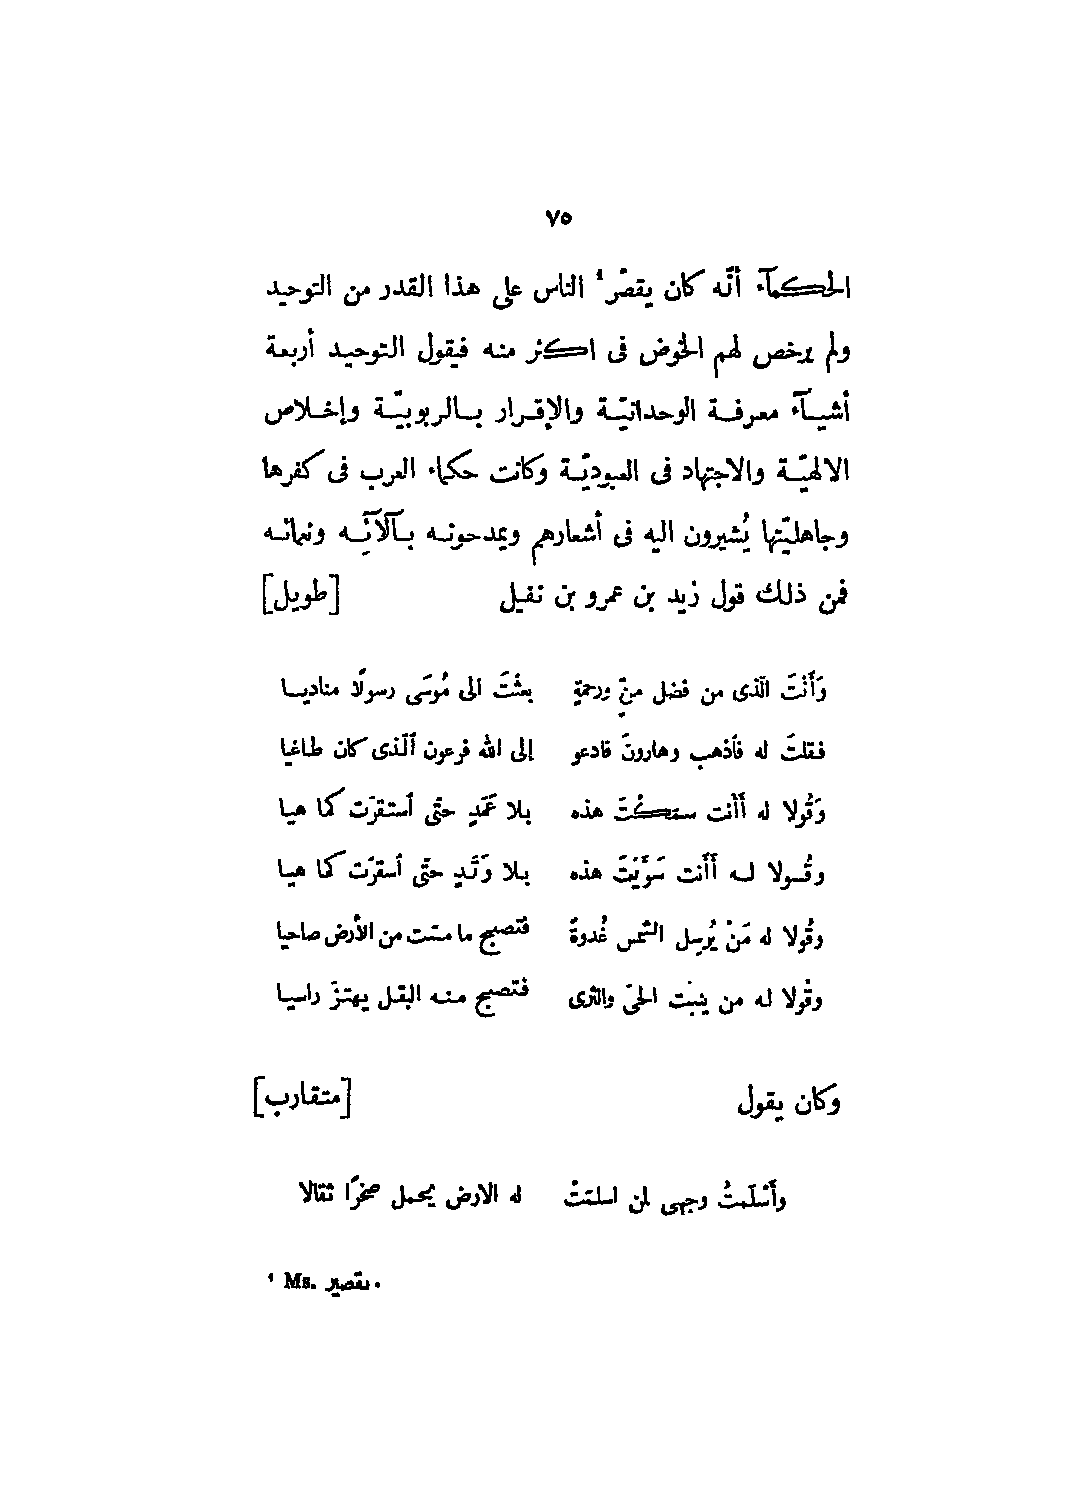 ٧٥
الحكمآء أنّه كان يقصّر ¹ الناس على هذا القدر من التوحيد
ولم يرخص لهم الخوض فى اكثر منه فيقول التوحيد أربعة
أشيـآء معرفـة الوحدانيّـة والإقـرار بـالربوبيّـة وإخـلاص
الالهيّـة والاجتهاد فى العبوديّـة وكانت حكماء العرب فى كفرها
وجاهليّتها يُشيرون اليه فى أشعارهم ويمدحونـه بـآلآئِـه ونعمائـه
فمن ذلك قول زيد بن عمرو بن نفيل [طويل]
وَأَنْتَ الّذى من فضل منٍّ ورحمةٍ بعثْتَ الى مُوسَى رسولًا مناديـا
فقلتَ له فٱذهب وهارونَ فادعو إلى الله فرعون ٱلّذى كان طاغيا
وَقُولا له أأنت سمكْتَ هذه بلا عَمَدٍ حتّى ٱستقرّت كما هيا
وقُـولا لـه أَأَنت سَوَّيْتَ هذه بـلا وَتَـدٍ حتّى ٱستقرّت كما هيـا
وقُولا له مَنْ يُرسِل الشمس غُدوةً فتصبح ما مسّت من الأرض ضاحيا
وقُولا له من ينبت الحىّ والثرى فتُصبح منه البقل يهتزّ رابيا
وكان يقول [متقارب]
وأَسْلَمتُ وجهى لمن اسلمَتْ له الارض يحمل صخرًا ثقالا
¹ Ms. ىقصير.